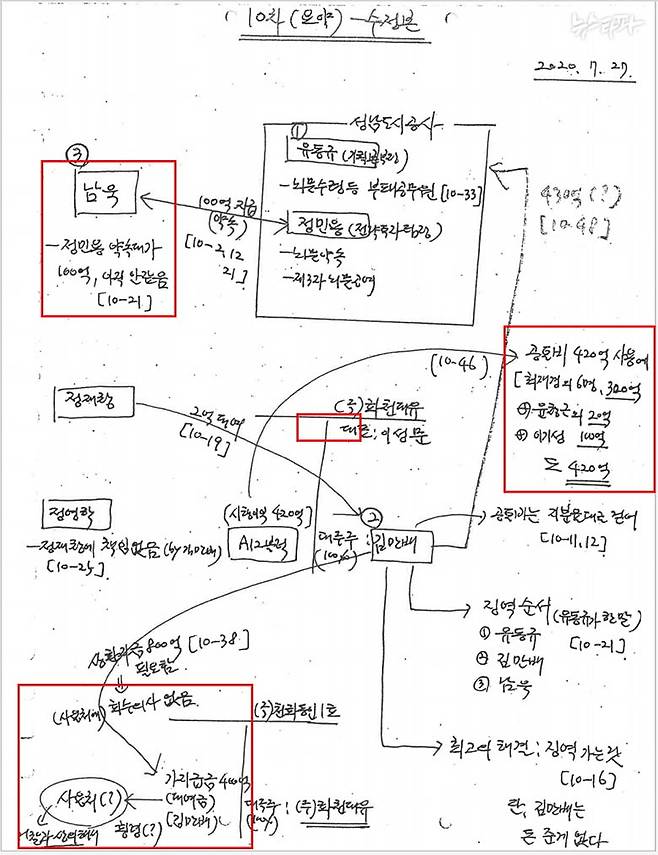 10차(요약) - 수정본
뉴스타파
2020. 7. 27
성남도시공사
①
유동규(기획본부장)
- 뇌물수령 등 부패공무원 [10-33]
정민용 (전략투자팀장)
- 뇌물약속
- 제3자뇌물공여
③
남욱
- 정민용 약속대가
100억, 아직 안줬음
[10-21]
100억 지급
(약속)
[10-2, 12
21]
430억(?)
[10-48]
[10-46]
공통비 420억 사용에
[최재경의 6명, 320억
⊕ 윤창근의 2억
⊕ 이기성 100억
도 420억
정재창
2억 대여
[10-19]
(주)화천대유
대표 : 이성문
정영학
- 정재창에 책임없음 (by 김만배)
[10-25]
(시행이익 420억)
A12블럭
②
대주주 : 김만배
(100%)
공통비는 지분문대로 걷어
[10-11, 12]
징역 순서 (유동규가 한 말)
① 유동규
② 김만배
③ 남욱
[10-21]
800억 [10-38]
필요함
⇓
(사용처에) 회수의사 없음
(주)천화동인1호
가지급금 400억
(대여금)
(김만배)
사용처(?)
횡령(?)
대주주 : (주)화천대유
(100%)
최고의 해결 : 징역 가는 것
[10-16]
단, 김만배는
돈 준게 없다